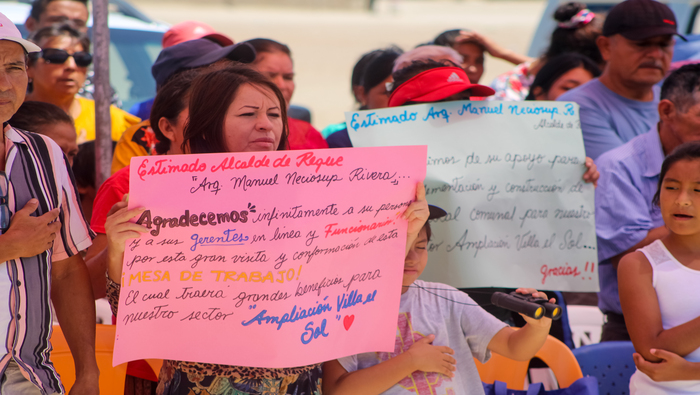 Estimado Alcalde de Reque
"Arq. Manuel Neciosup Rivera"...
Agradecemos infinitamente a su persona
y a sus gerentes en linea y Funcionarios
por esta gran visita y conformación de esta
MESA DE TRABAJO!
El cual traera grandes beneficios para
nuestro sector "Ampliación Villa el
Sol"
Estimado Arq. Manuel Neciosup
Alcalde de
imos de su apoyo para
ementación y construcción de
al comunal para nuestro
r Ampliación Villa el Sol.
gracias!!
adidas